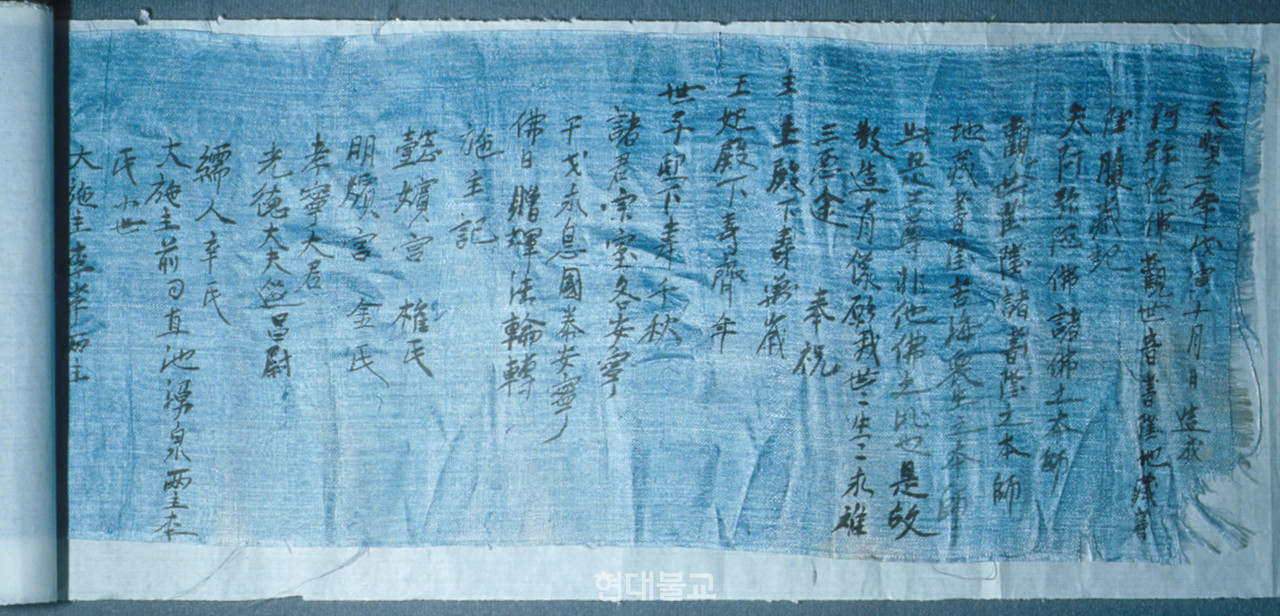 天順二年戊寅十月日 造成
阿弥陀佛觀世音菩薩地藏菩
薩腹藏記
夫阿弥陀佛諸佛之本師
觀世音菩薩諸菩薩之本師
地藏菩薩苦海衆生之本師
此是三尊非他佛之比也是故
敬造肖儀願我世〻生〻永離
三惡途 奉祝
主上殿下壽萬歲
王妃殿下壽齊年
世子邸下壽千秋
諸君宗室各安寧
干戈永息國泰安寧
佛日贈輝法輪轉
施主記
懿嬪宮 權氏
明嬪宮 金氏
孝寧大君
光德大夫延昌尉
孺人辛氏
大施主前司直池湧泉兩主本
氏小世
大施主李 兩主
현대불교